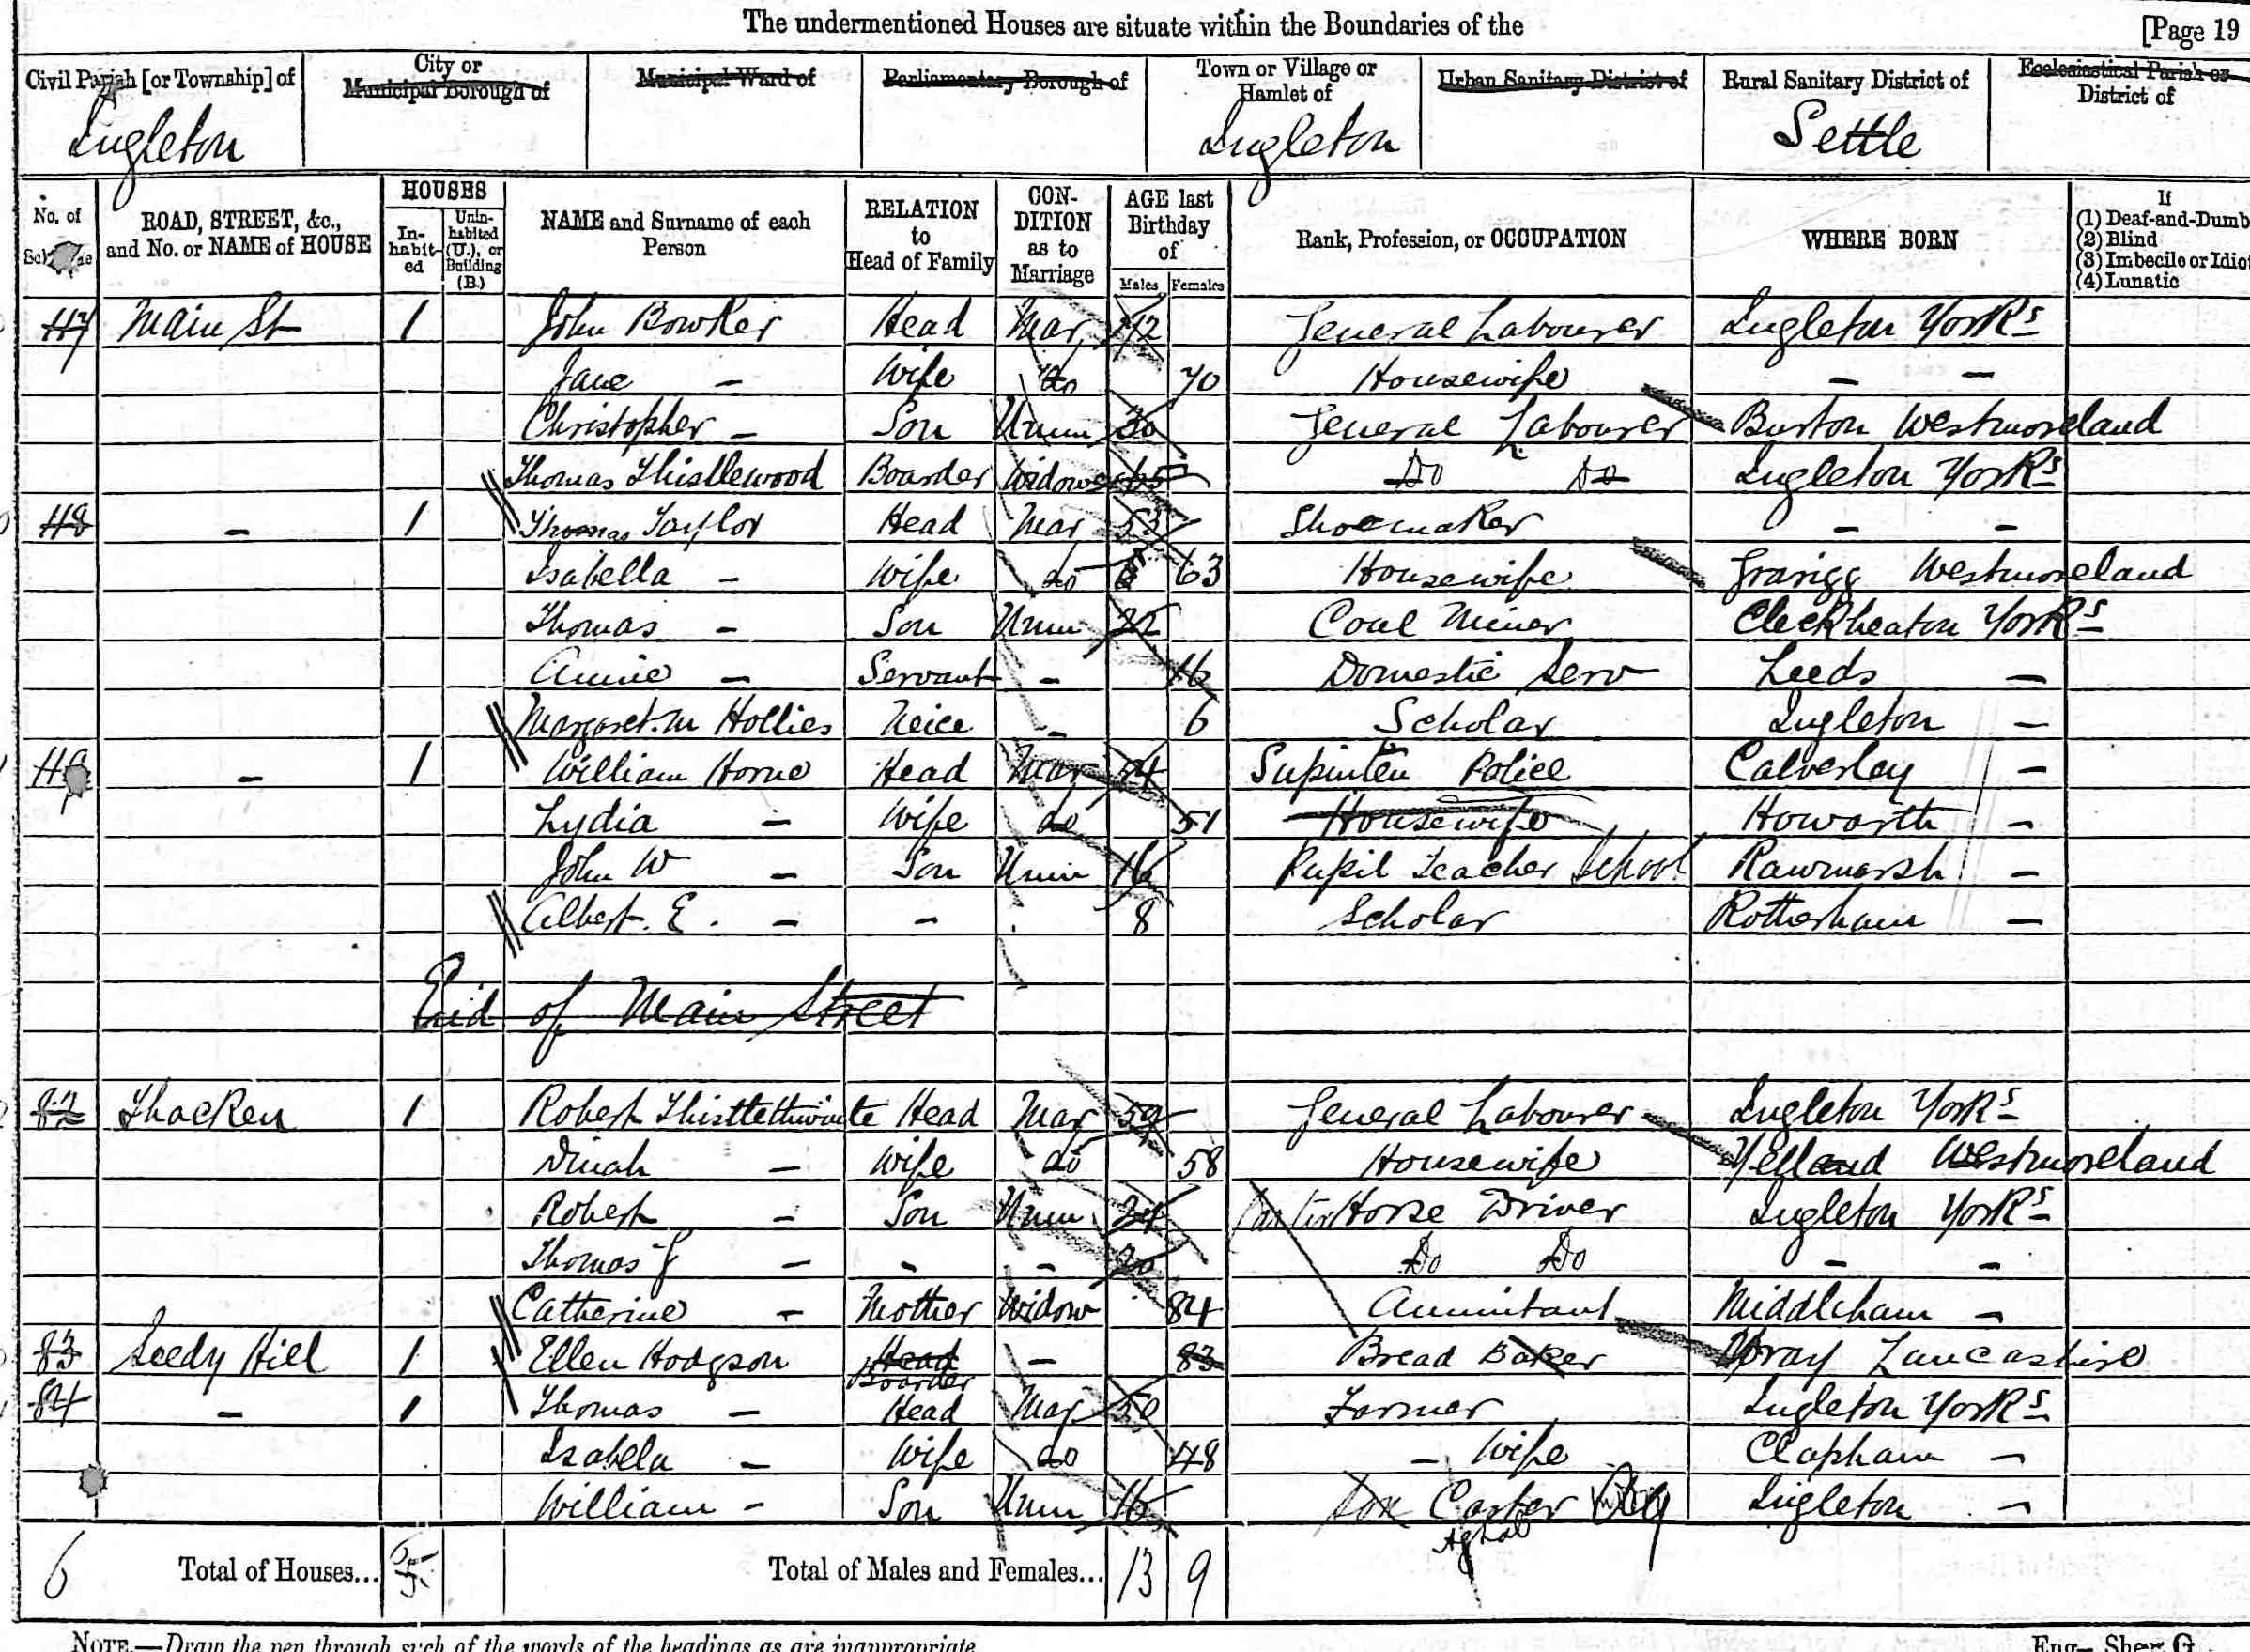 The undermentioned Houses are situate within the Boundaries of the [Page 19
Civil Parish [or Township] of City or Municipal Borough of Municipal Ward of Parliamentary Borough of Town or Village or Hamlet of Urban Sanitary District of Rural Sanitary District of Ecclesiastical Parish or District of
Ingleton Ingleton Settle
No. of ROAD, STREET, &c., and No. or NAME of HOUSE HOUSES Inhabited Uninhabited (U.), or Building (B.) NAME and Surname of each Person RELATION to Head of Family CONDITION as to Marriage AGE last Birthday of Males Females Rank, Profession, or OCCUPATION WHERE BORN If (1) Deaf-and-Dumb (2) Blind (3) Imbecile or Idiot (4) Lunatic
47 Main St 1 John Bowker Head Mar 72 General Labourer Ingleton Yorks
Jane - Wife do 70 Housewife - -
Christopher - Son Unm 30 General Labourer Burton Westmoreland
Thomas Thistlewood Boarder Widower 65 Do Do Ingleton Yorks
48 - 1 Thomas Taylor Head Mar 53 Shoemaker - -
Isabella - Wife do 63 Housewife Grarigg Westmoreland
Thomas - Son Unm 22 Coal Miner Cleckheaton Yorks
Annie - Servant - 16 Domestic Serv Leeds -
Margaret. M Hollies Neice - 6 Scholar Ingleton -
49 - 1 William Horne Head Mar 54 Supinten Police Calverley -
Lydia - Wife do 51 Housewife Howarth -
John W - Son Unm 16 Pupil Teacher School Rawmarsh -
Albert. E. - - 8 Scholar Rotherham -
End of Main Street
82 Thacken 1 Robert Thistlethwaite Head Mar 59 General Labourer Ingleton Yorks
Dinah - Wife do 58 Housewife Yelland Westmoreland
Robert - Son Unm 24 Horse Driver Ingleton Yorks
Thomas G - - - 20 Do Do - -
Catherine - Mother Widow 84 Annuitant Middleham -
83 Seedy Hill 1 Ellen Hodgson Head Boarder - 83 Bread Baker Wray Lancashire
84 - 1 Thomas - Head Mar 50 Farmer Ingleton Yorks
Isabela - Wife do 48 - Wife Clapham -
William - Son Unm 16 Son Carter Ingleton -
6 Total of Houses... 5 Total of Males and Females... 13 9
NOTE.—Draw the pen through such of the words of the headings as are inappropriate. Eng—Sheet G.